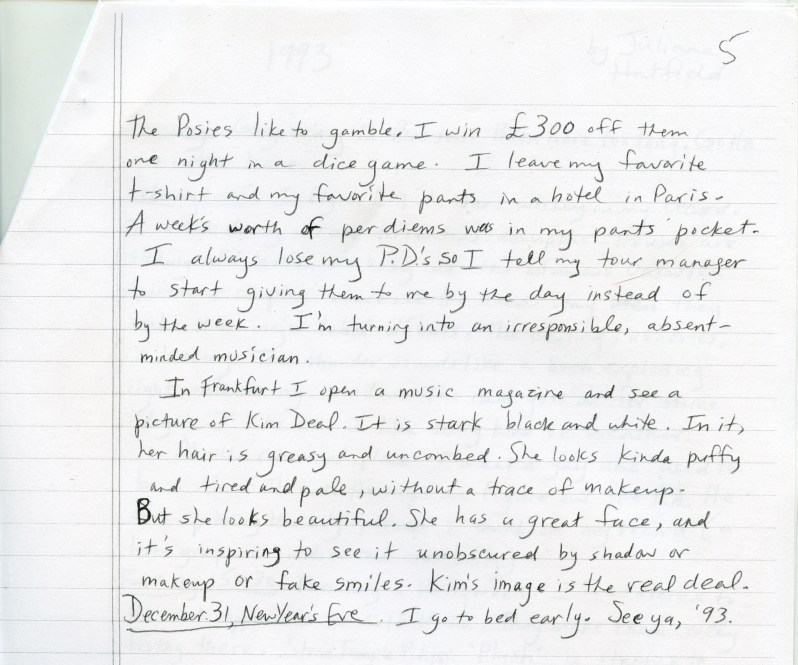 1993
by Juliana
Hatfield
5
The Posies like to gamble. I win £300 off them
one night in a dice game. I leave my favorite
t-shirt and my favorite pants in a hotel in Paris.
A week's worth of per diems was in my pants pocket.
I always lose my P.D.'s so I tell my tour manager
to start giving them to me by the day instead of
by the week. I'm turning into an irresponsible, absent-
minded musician.
In Frankfurt I open a music magazine and see a
picture of Kim Deal. It is stark black and white. In it,
her hair is greasy and uncombed. She looks kinda puffy
and tired and pale, without a trace of makeup.
But she looks beautiful. She has a great face, and
it's inspiring to see it unobscured by shadow or
makeup or fake smiles. Kim's image is the real deal.
December 31, New Year's Eve. I go to bed early. See ya, '93.